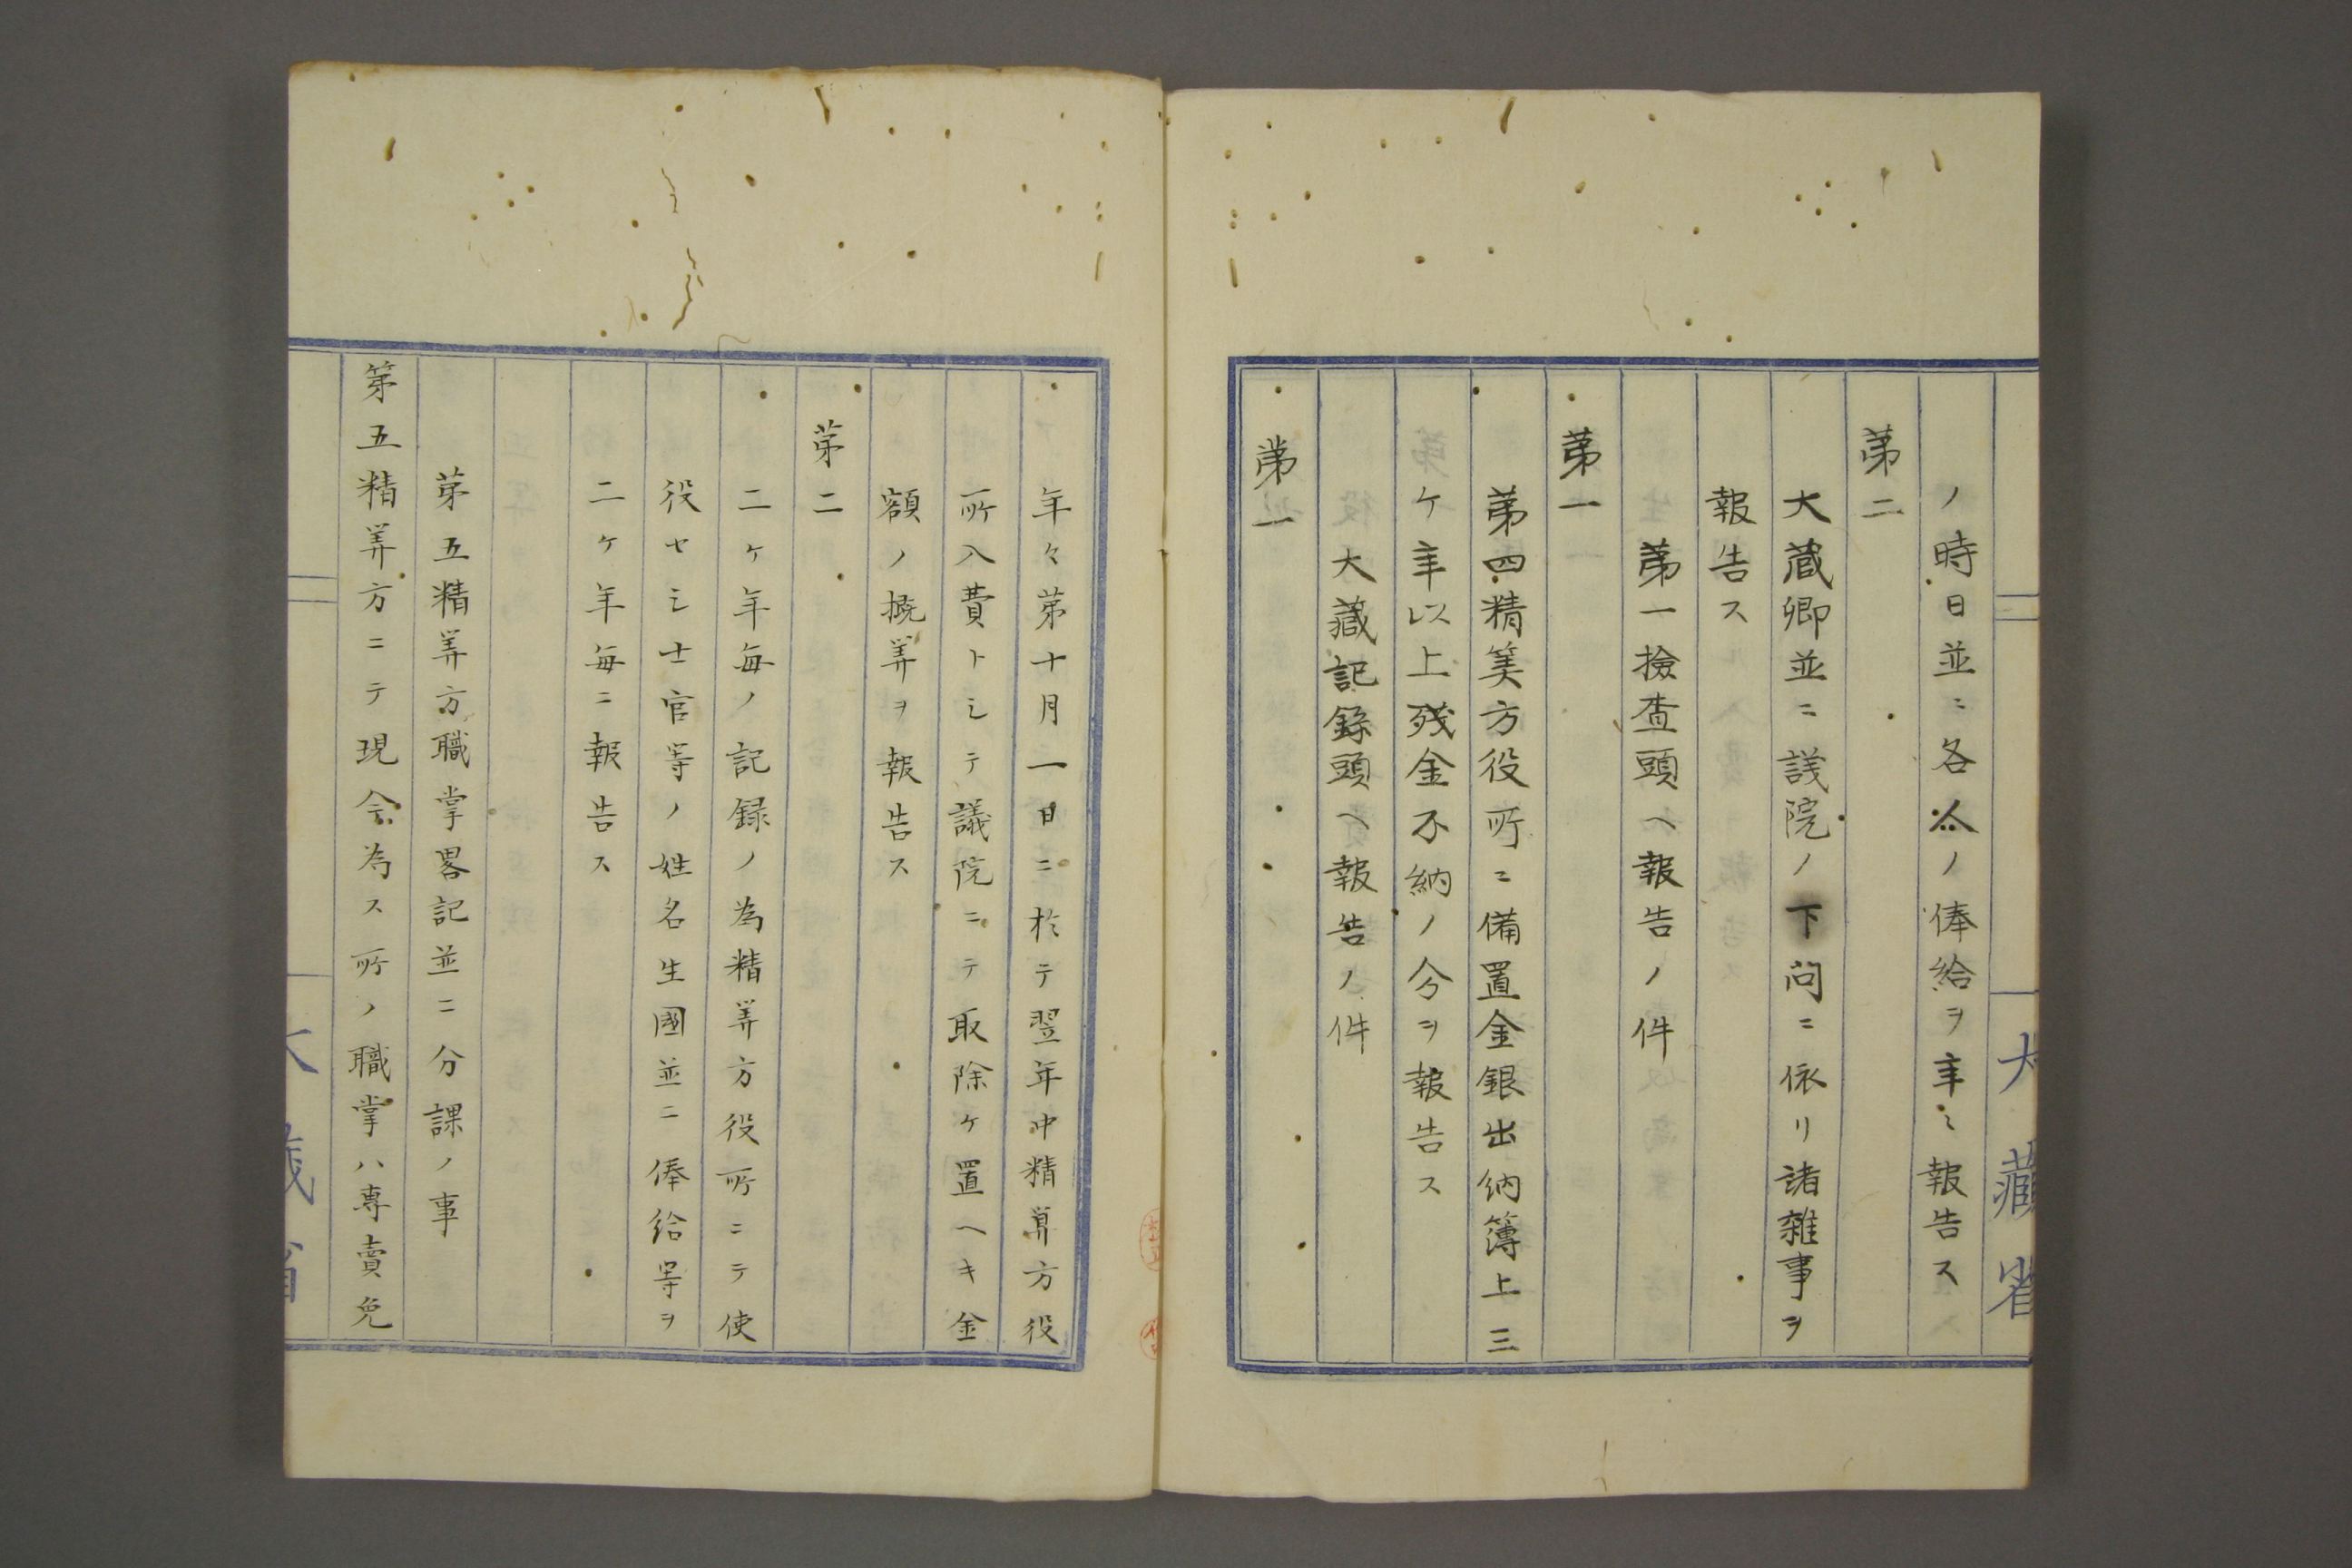 大藏省
ノ時日並ニ各人ノ俸給ヲ年〻報告ス
第二
大蔵卿並ニ議院ノ下問ニ依リ諸雜事ヲ
報告ス
第一撿查頭ヘ報告ノ件
第一
第四精筭方役所ニ備置金銀出納簿上三
ケ年以上残金不納ノ分ヲ報告ス
大蔵記錄頭ヘ報告ノ件
第一
年々第十月一日ニ於テ翌年中精算方役
所入費トシテ議院ニテ取除ケ置ヘキ金
額ノ概算ヲ報告ス
第二
二ケ年每ノ記録ノ為精筭方役所ニテ使
役セシ士官等ノ姓名生國並ニ俸給等ヲ
二ケ年每ニ報告ス
第五精筭方職掌畧記並ニ分課ノ事
第五精筭方ニテ現今為ス所ノ職掌ハ専賣免
大藏省